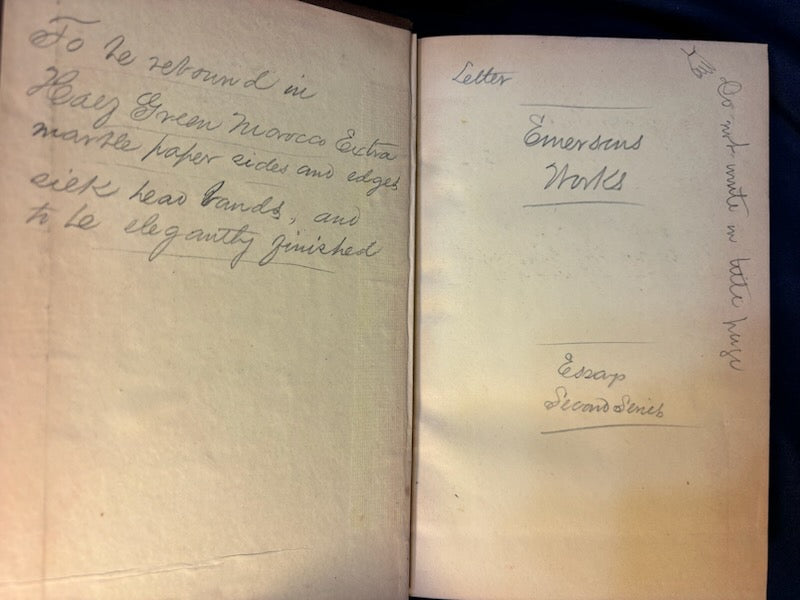 To be rebound in
Half Green Morocco Extra
marble paper sides and edges
silk head bands, and
to be elegantly finished
Letter
Emersons
Works
Essays
Second Series
Do not write in title page